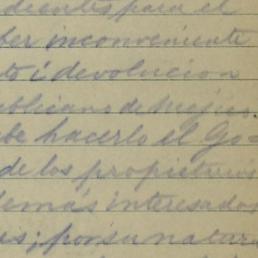 dientes para el
ber inconveniente
to i devolucion
ublicano de Mejico
be hacerlo el Go-
de los propietarios
demás interesados
es; por su natura